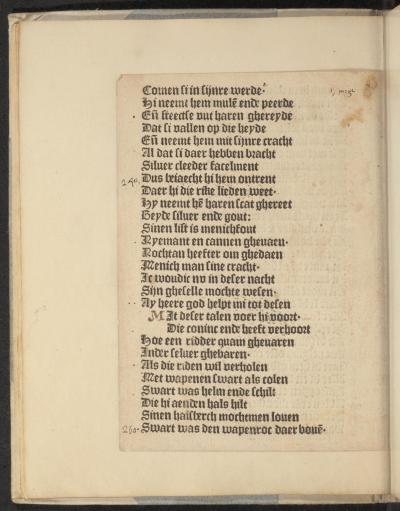 Comen si in sijnre werde·
Hi neemt hem mulē ende peerde
Eñ steectse vut haren ghereyde
Dat si vallen op die heyde
Eñ neemt hem mit sijnre cracht
Al dat si daer hebben bracht
Siluer cleeder sacelment
240. Dus beiaecht hi hem ontrent
Daer hi die rike lieden weet·
Hy neemt hē haren scat ghereet
Beyde siluer ende gout:
Sinen list is menichfout
Nyemant en cannen gheuaen·
Nochtan heefter om ghedaen
Menich man sine cracht·
Ic woudic nv in deser nacht
Sijn gheselle mochte wesen·
Ay heere god helpt mi tot desen
MIt deser talen voer hi voort·
Die coninc ende heeft verhoort
Hoe een ridder quam gheuaren
Inder seluer ghebaren·
Als die riden wil verholen
Met wapenen swart als colen
Swart was helm ende schilt
Die hi aenden hals hilt
Sinen halsberch mochtmen louen
260. Swart was den wapenroc daer bouē·